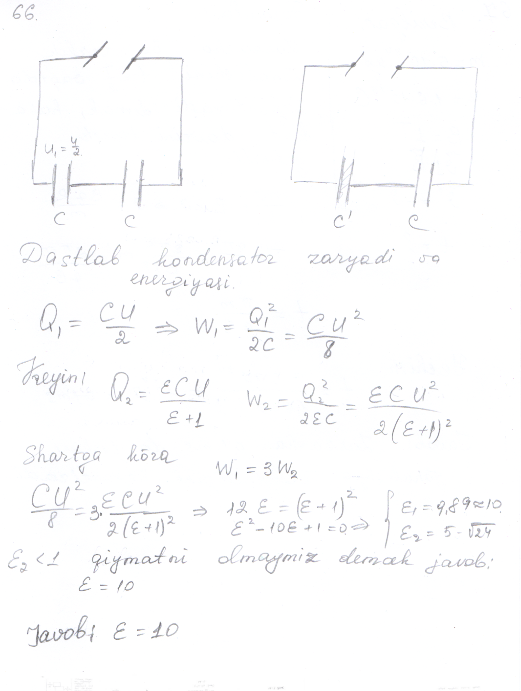 66.
U₁ = U/2
C C
C' C
Dastlab kondensator zaryadi va
energiyasi.
Q₁ = CU/2 ⇒ W₁ = Q₁²/2C = CU²/8
Keyin Q₂ = εCU/(ε+1) W₂ = Q₂²/2εC = εCU²/2(ε+1)²
Shartga ko'ra W₁ = 3W₂
CU²/8 = 3·εCU²/2(ε+1)² ⇒ 12ε = (ε+1)² ε₁ = 9,89 ≈ 10
ε² - 10ε + 1 = 0 ⇒ { ε₂ = 5 - √24
ε₂ < 1 qiymatni olmaymiz demak javob:
ε = 10
Javobi ε = 10